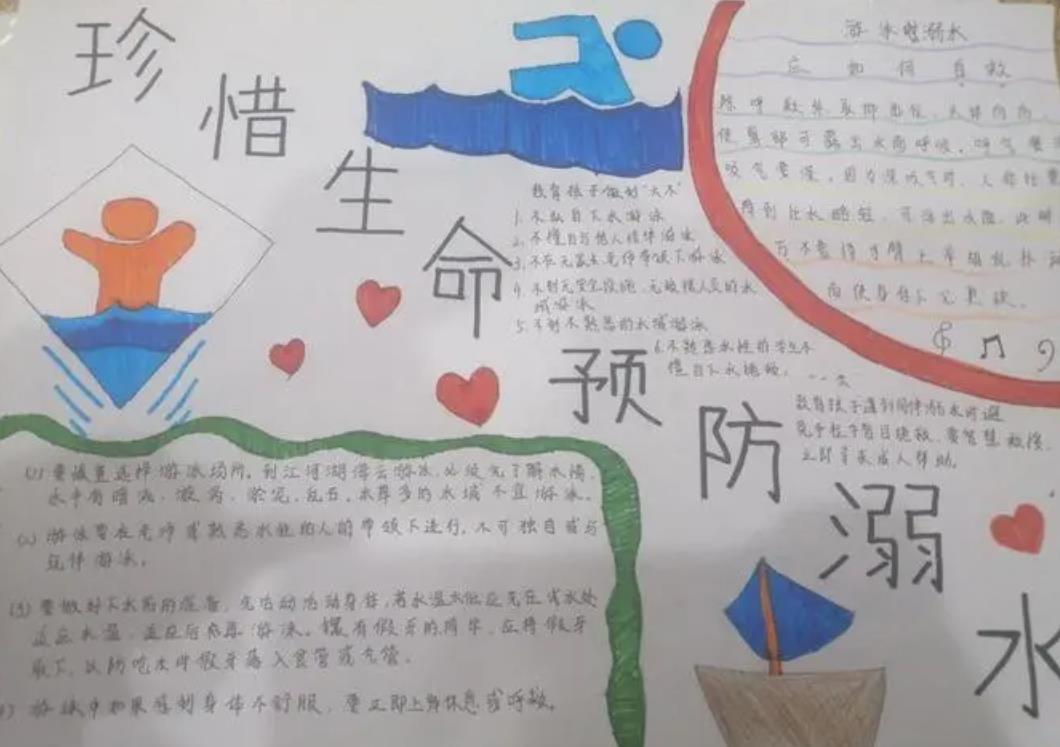 珍惜生命预防溺水
游泳时溺水
应如何自救
除呼救外,取仰卧位,头部向后,
使鼻部可露出水面呼吸,呼气要
吸气要深,因为深吸气时,人体比重
降到比水略轻,可浮出水面,此时
万不要将手臂上举胡乱扑动
而使身体下沉更快。
教育孩子做到"六不"
1. 不私自下水游泳
2. 不擅自与他人结伴游泳
3. 不在无家长老师带领下游泳
4. 不到无安全设施、无救援人员的水
域游泳
5. 不到不熟悉的水域游泳
6. 不熟悉水性的学生不
擅自下水施救。
教育孩子遇到同伴溺水时避
免手拉手盲目施救,要智慧救援,
立即寻求成人帮助。
(1) 要慎重选择游泳场所,到江河湖海去游泳,必须先了解水情,
水中有暗流、漩涡、淤泥、乱石、水草多的水域不宜游泳。
(2) 游泳要在老师或熟悉水性的人的带领下进行,不可独自或与
玩伴游泳。
(3) 要做好下水前的准备,先活动活动身体,若水温太低应先在浅水处
适应水温,适应后再游泳。镶有假牙的同学,应将假牙
取下,以防呛水时假牙落入食管或气管。
游泳中如果感到身体不舒服,要立即上岸休息或呼救。